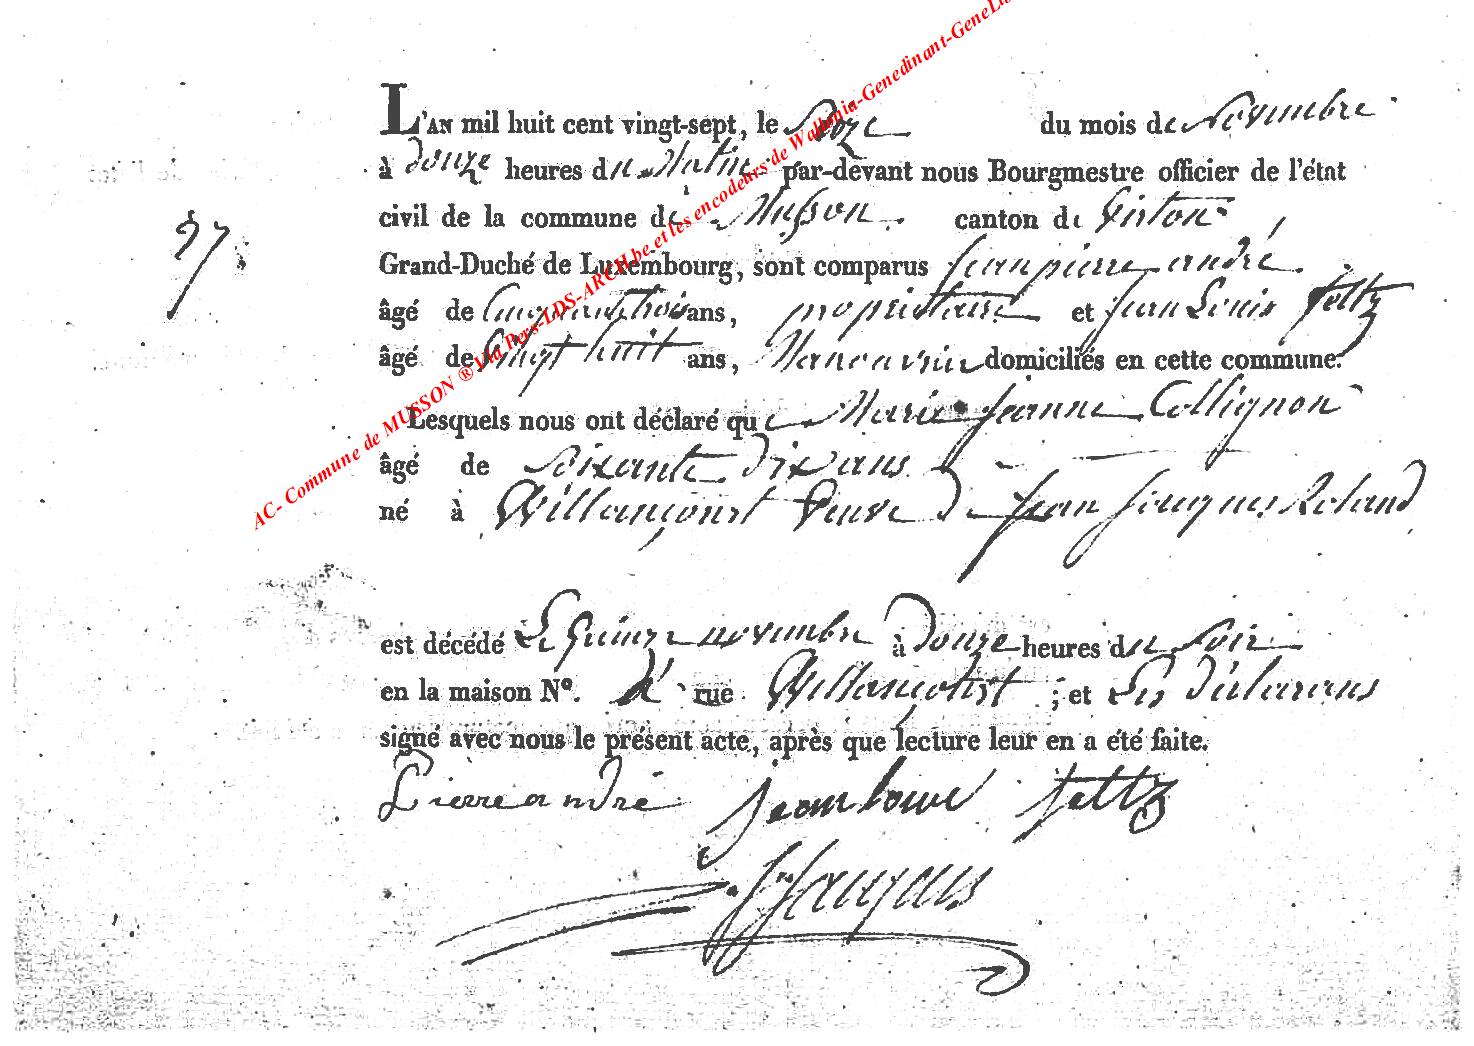 L'AN mil huit cent vingt-sept, le Seize du mois de Novembre
à douze heures du Matin par-devant nous Bourgmestre officier de l'état
civil de la commune de Musson canton de Virton
37
Grand-Duché de Luxembourg, sont comparus Jean pierre andré
âgé de Cinquante trois ans, propriétaire et Jean Louis feltz
âgé de Vingt huit ans, Manoeuvre domiciliés en cette commune.
Lesquels nous ont déclaré que Marie Jeanne Collignon
âgé de Soixante dix ans
né à Willancourt Veuve de Jean Jacques Roland
est décédé Le Quinze novembre à douze heures du Soir
en la maison Nº. rue Willancourt ; et Les déclarans
signé avec nous le présent acte, après que lecture leur en a été faite.
Pierre andré Jean louis feltz
AC- Commune de MUSSON ® Via Pers-LDS-ARCH.be et les encodeurs de Wallonia-Genedinant-GeneLu